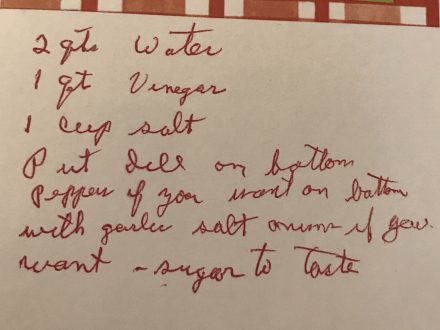 2 qts Water
1 qt Vinegar
1 cup salt
Put dill on bottom
Pepper if you want on bottom
with garlic salt onions if you
want - sugar to Taste